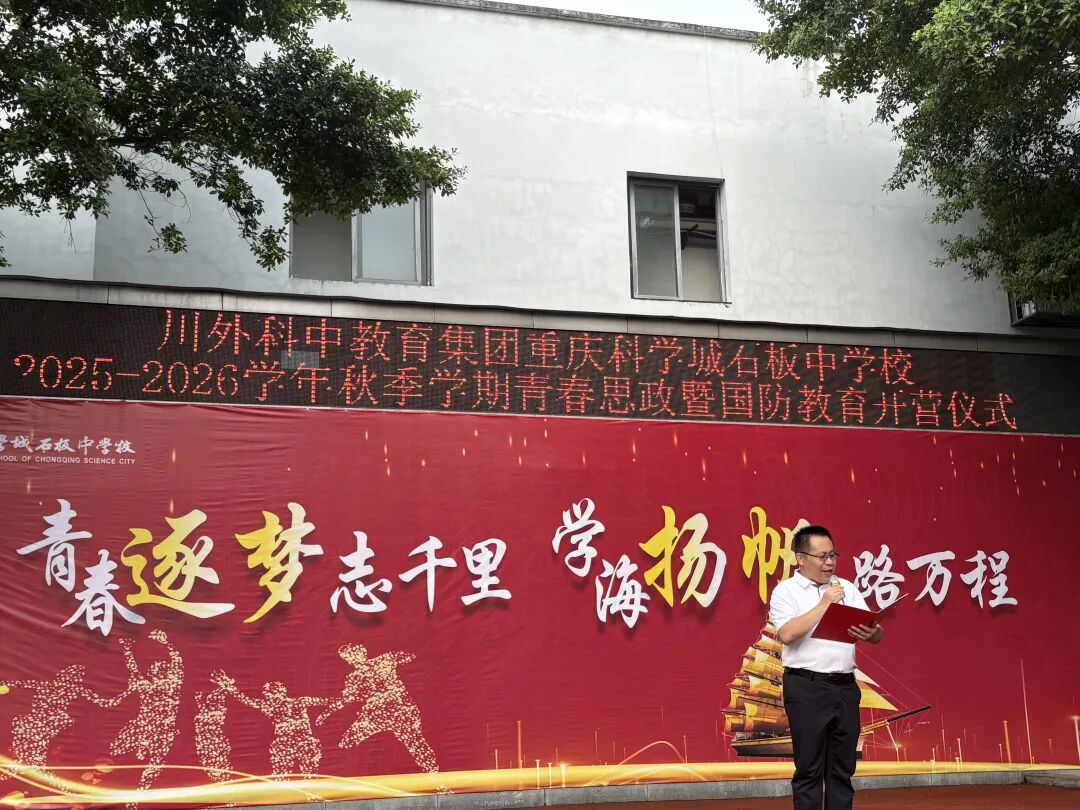 川外科中教育集团重庆科学城石板中学校
2025-2026学年秋季学期青春思政暨国防教育开营仪式
学城石板中学校
HOOL OF CHONGQING SCIENCE CITY
青春逐梦志千里 学海扬帆 路万程